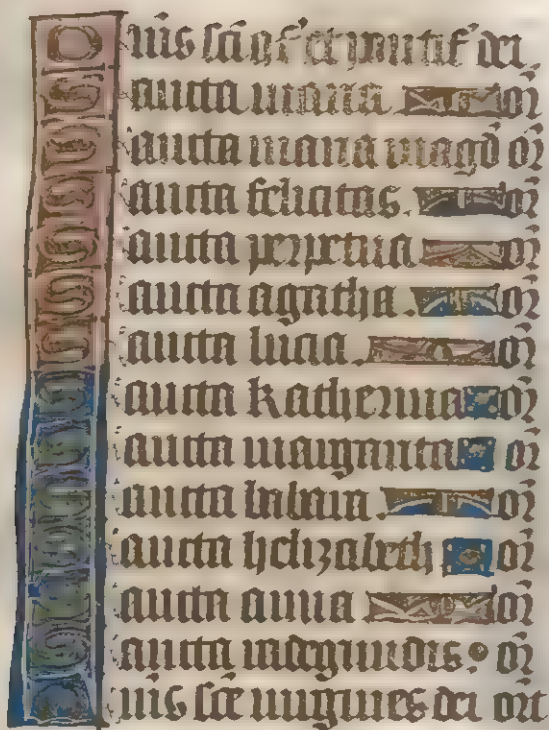 Omis sci et dei
Sancta maria or
Sancta maria magd or
Sancta felicitas. or
Sancta perpetua or
Sancta agatha. or
Sancta lucia. or
Sancta katherina or
Sancta margarita or
Sancta babara. or
Sancta helizabeth or
Sancta anna or
Sancta radegundis. or
Omis sce uirgines dei ort